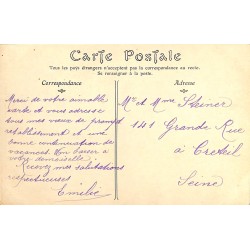 Carte Postale
Tous les pays étrangers n'acceptent pas la correspondance au recto.
Se renseigner à la poste.
Correspondance
Merci de votre aimable
carte et vous adresse
tous mes vœux de prompt
rétablissement et une
bonne continuation de
vacances. Un baiser à
votre demoiselle.
Recevez mes salutations
respectueuses
Emélie
Adresse
Mr et Mme Steiner
141 Grande Rue
à Creteil
Seine